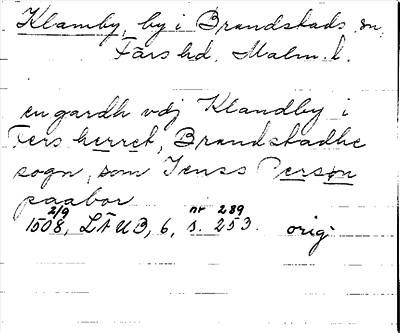 Klamby, by i Brandstads sn,
Färs hd. Malm. l.
en gardh vdj Klandby i
Fers herret, Brandstadhe
sogn, som Jenss Person
paabor
2/9 nr 289
1508, LÄUB, 6, s. 253. orig.